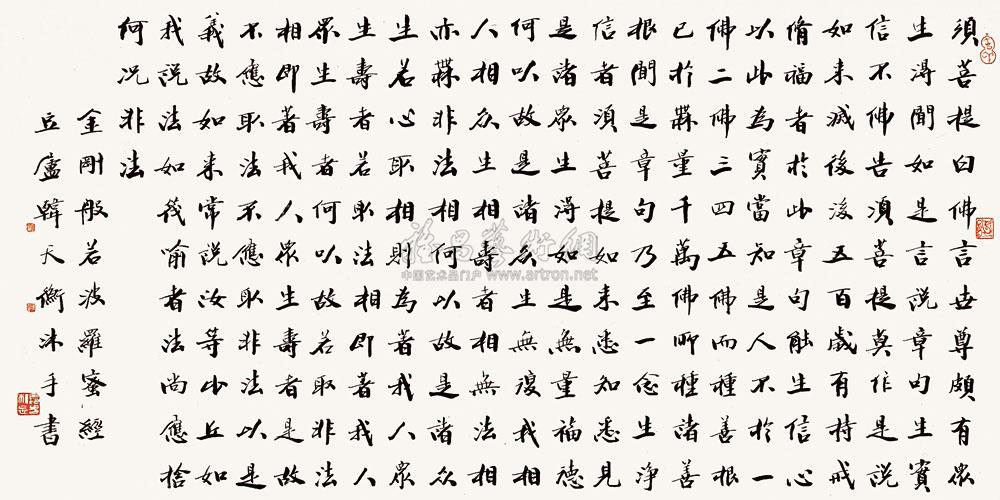 須菩提白佛言世尊頗有眾
生得聞如是言說章句生實
信不佛告須菩提莫作是說
如来滅後後五百歲有持戒
脩福者於此章句能生信心
以此為實當知是人不於一
佛二佛三四五佛而種善根
已於無量千萬佛所種諸善
根聞是章句乃至一念生淨
信者須菩提如来悉知悉見
是諸眾生得如是無量福德
何以故是諸众生無復我相
人相众生相壽者相無法相
亦無非法相何以故是諸众
生若心取相則為著我人眾
生壽者若取法相即著我人
眾生壽者何以故若取非法
相即著我人眾生壽者是故
不應取法不應取非法以是
義故如来常說汝等比丘如
我說法如筏喻者法尚應捨
何況非法
金剛般若波羅蜜經
豆廬韓天衡沐手書
雅昌藝術網
中国艺术品门户 www.artron.net